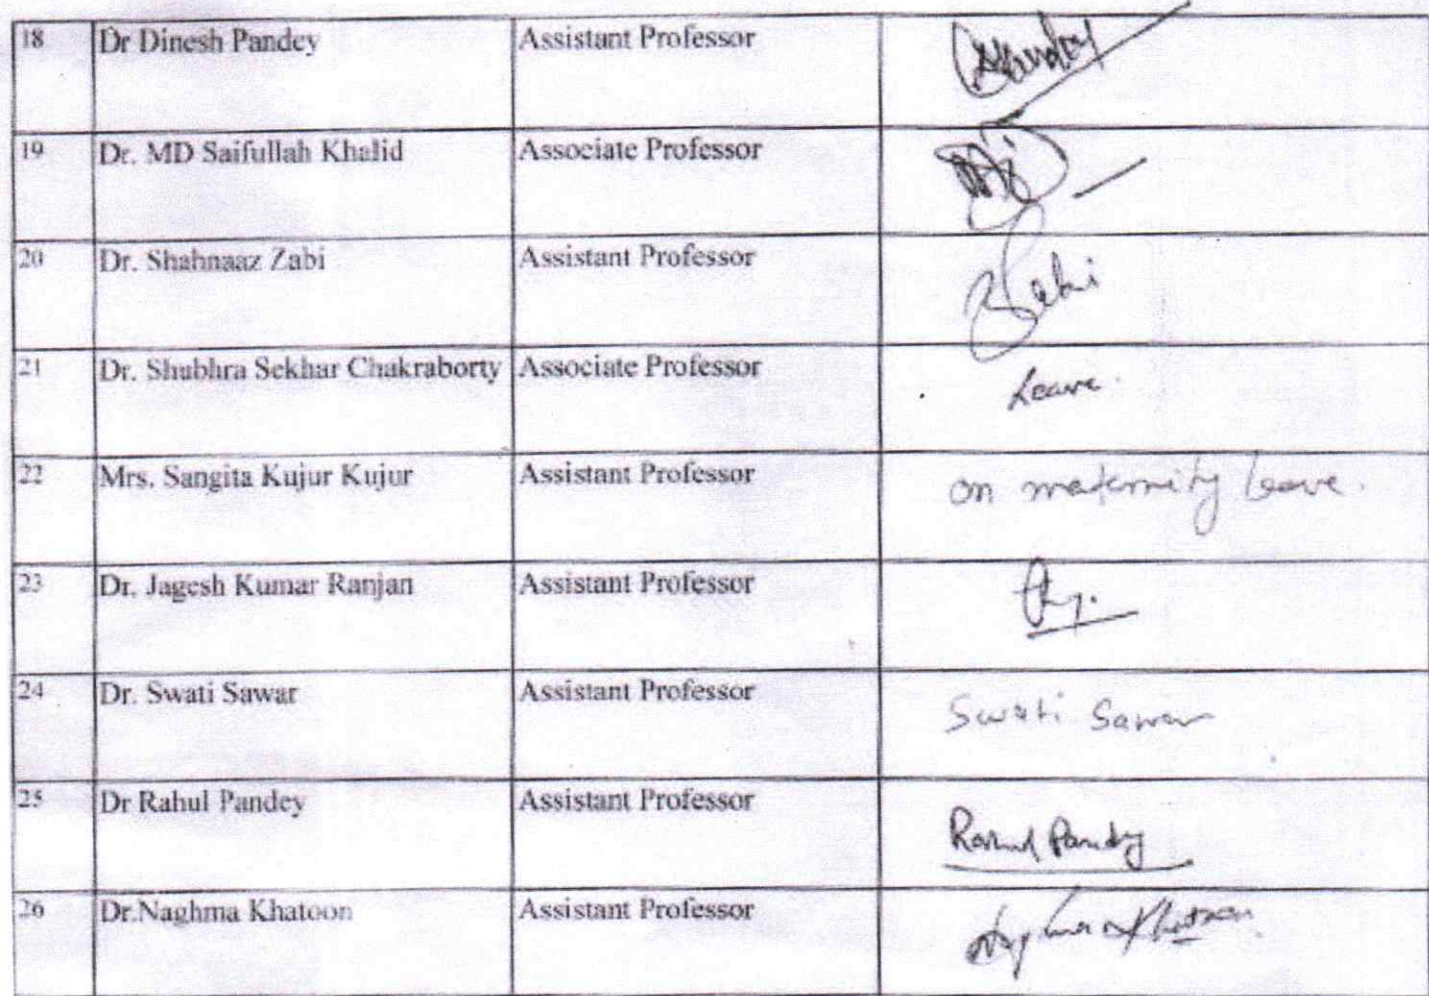 18 Dr Dinesh Pandey Assistant Professor
19 Dr. MD Saifullah Khalid Associate Professor
20 Dr. Shahnaaz Zabi Assistant Professor Zabi
21 Dr. Shubhra Sekhar Chakraborty Associate Professor Leave.
22 Mrs. Sangita Kujur Kujur Assistant Professor on maternity leave.
23 Dr. Jagesh Kumar Ranjan Assistant Professor
24 Dr. Swati Sawar Assistant Professor Swati Sawar
25 Dr Rahul Pandey Assistant Professor Rahul Pandey
26 Dr.Naghma Khatoon Assistant Professor Naghma Khatoon